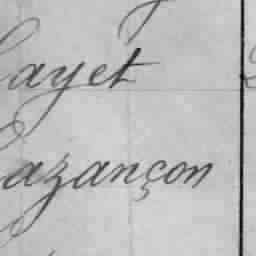 Cayet
Cazançon